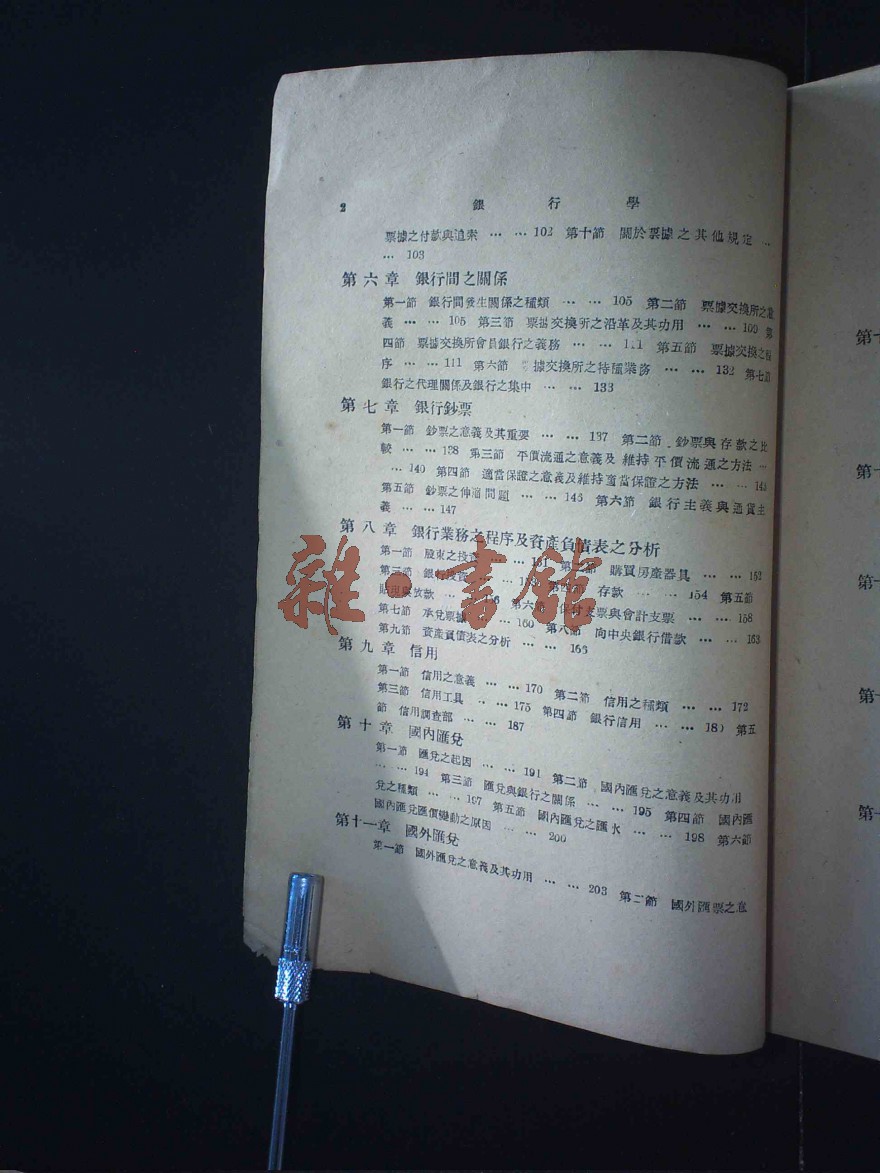 2 銀行學
票據之付款與追索 … … 102 第十節 關於票據之其他規定 …
… 103
第六章 銀行間之關係
第一節 銀行間發生關係之種類 … … 105 第二節 票據交換所之意
義 … … 105 第三節 票據交換所之沿革及其功用 … … 109 第
四節 票據交換所會員銀行之義務 … … 111 第五節 票據交換之程
序 … … 111 第六節 據交換所之特種業務 … … 132 第七節
銀行之代理關係及銀行之集中 … … 133
第七章 銀行鈔票
第一節 鈔票之意義及其重要 … … 137 第二節 鈔票與存款之比
較 … … 138 第三節 平價流通之意義及維持平價流通之方法 …
… 140 第四節 適當保證之意義及維持適當保證之方法 … … 145
第五節 鈔票之伸縮問題 … … 146 第六節 銀行主義與通貨主
義 … … 147
第八章 銀行業務之程序及資產負債表之分析
第一節 股東之投資 … 151 第二節 購買房產器具 … … 152
第三節 銀行投資 … … 第四節 存款 … … 154 第五節
貼現與放款 … … 156 第六節 保付支票與會計支票 … … 158
第七節 承兌票據 … … 160 第八節 向中央銀行借款 … … 163
第九節 資產負債表之分析 … … 166
第九章 信用
第一節 信用之意義 … … 170 第二節 信用之種類 … … 172
第三節 信用工具 … … 175 第四節 銀行信用 … … 18 第五
節 信用調查部 … … 187
第十章 國內匯兌
第一節 匯兌之起因 … … 191 第二節 國內匯兌之意義及其功用
… … 194 第三節 匯兌與銀行之關係 … … 195 第四節 國內匯
兌之種類 … … 197 第五節 國內匯兌之匯水 … … 198 第六節
國內匯兌匯價變動之原因 … … 200
第十一章 國外匯兌
第一節 國外匯兌之意義及其功用 … … 203 第二節 國外匯票之意
雜·書館
第十
第十
第十
第十
第十